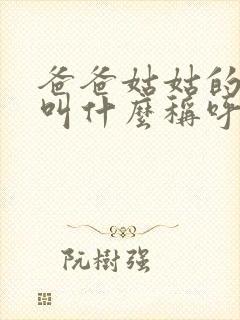 爸爸姑姑的
叫什麼稱呼
阮樹强